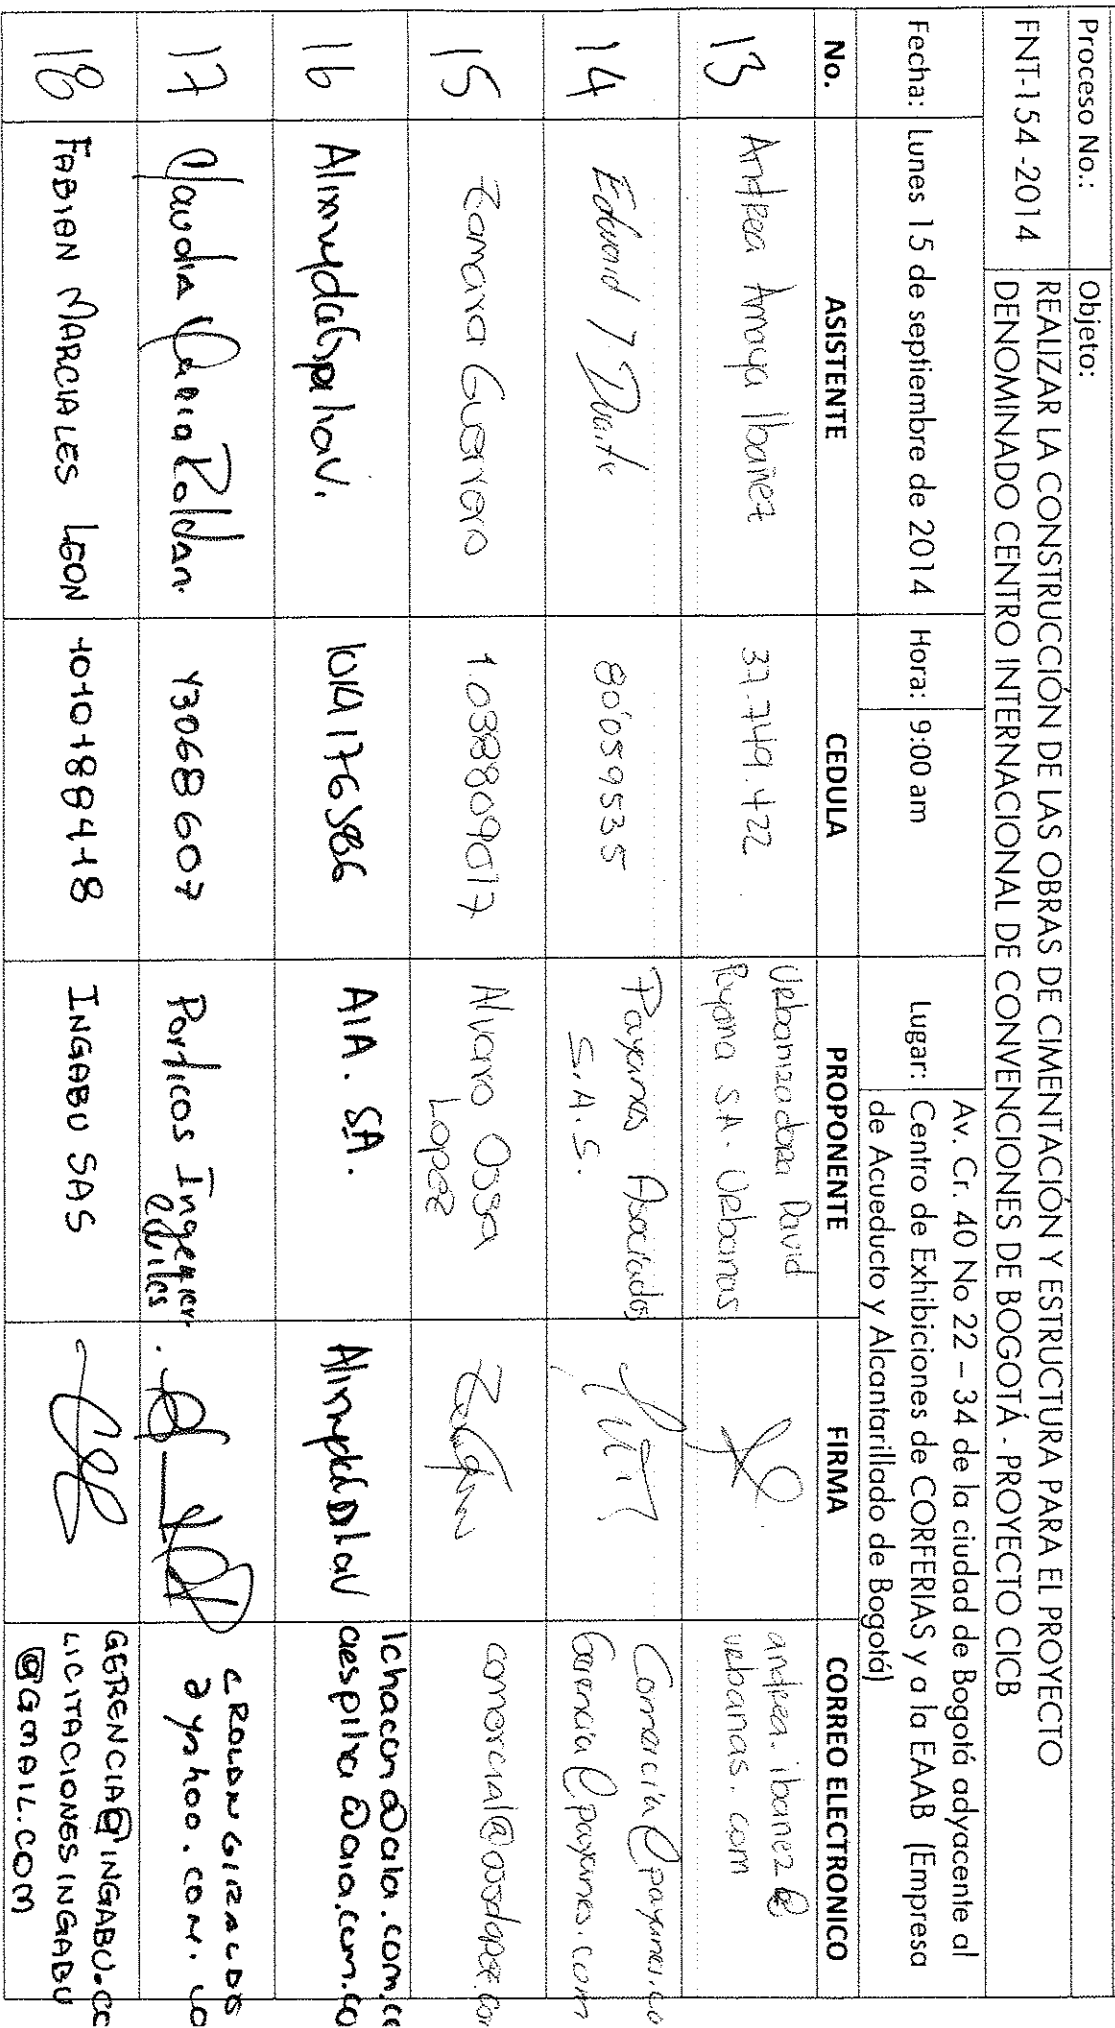 Proceso No.: Objeto:
FNT-154 -2014 REALIZAR LA CONSTRUCCIÓN DE LAS OBRAS DE CIMENTACIÓN Y ESTRUCTURA PARA EL PROYECTO
DENOMINADO CENTRO INTERNACIONAL DE CONVENCIONES DE BOGOTÁ - PROYECTO CICB
Fecha: Lunes 15 de septiembre de 2014 Hora: 9:00 am Lugar: Av. Cr. 40 No 22 – 34 de la ciudad de Bogotá adyacente al
Centro de Exhibiciones de CORFERIAS y a la EAAB (Empresa
de Acueducto y Alcantarillado de Bogotá)
No. ASISTENTE CEDULA PROPONENTE FIRMA CORREO ELECTRONICO
13 Andrea Amaya Ibañez 37.749.422. Urbanizadora David
Puyana S.A. Urbanas
andrea.ibanez@
urbanas.com
14 Edward J. Duarte 80'059535 Payanes Asociados
S.A.S.
Comercia@payanes.co
Gerencia@payanes.com
15 Zamara Guerrero 1.038809017 Alvaro Ossa
Lopez
comercial@ossalopez.com
16 1014176386 AIA. SA.
lchacon@aia.com.co
aespitia@aia.com.co
17 Claudia Roldan. 43068607 Porticos Ingenier.
civiles
CROLDANGIRALDO
@yahoo.com.co
18 FABIAN MARCIALES LEON 1010188418 INGABU SAS
GERENCIA@INGABU.CO
LICITACIONESINGABU
@GMAIL.COM